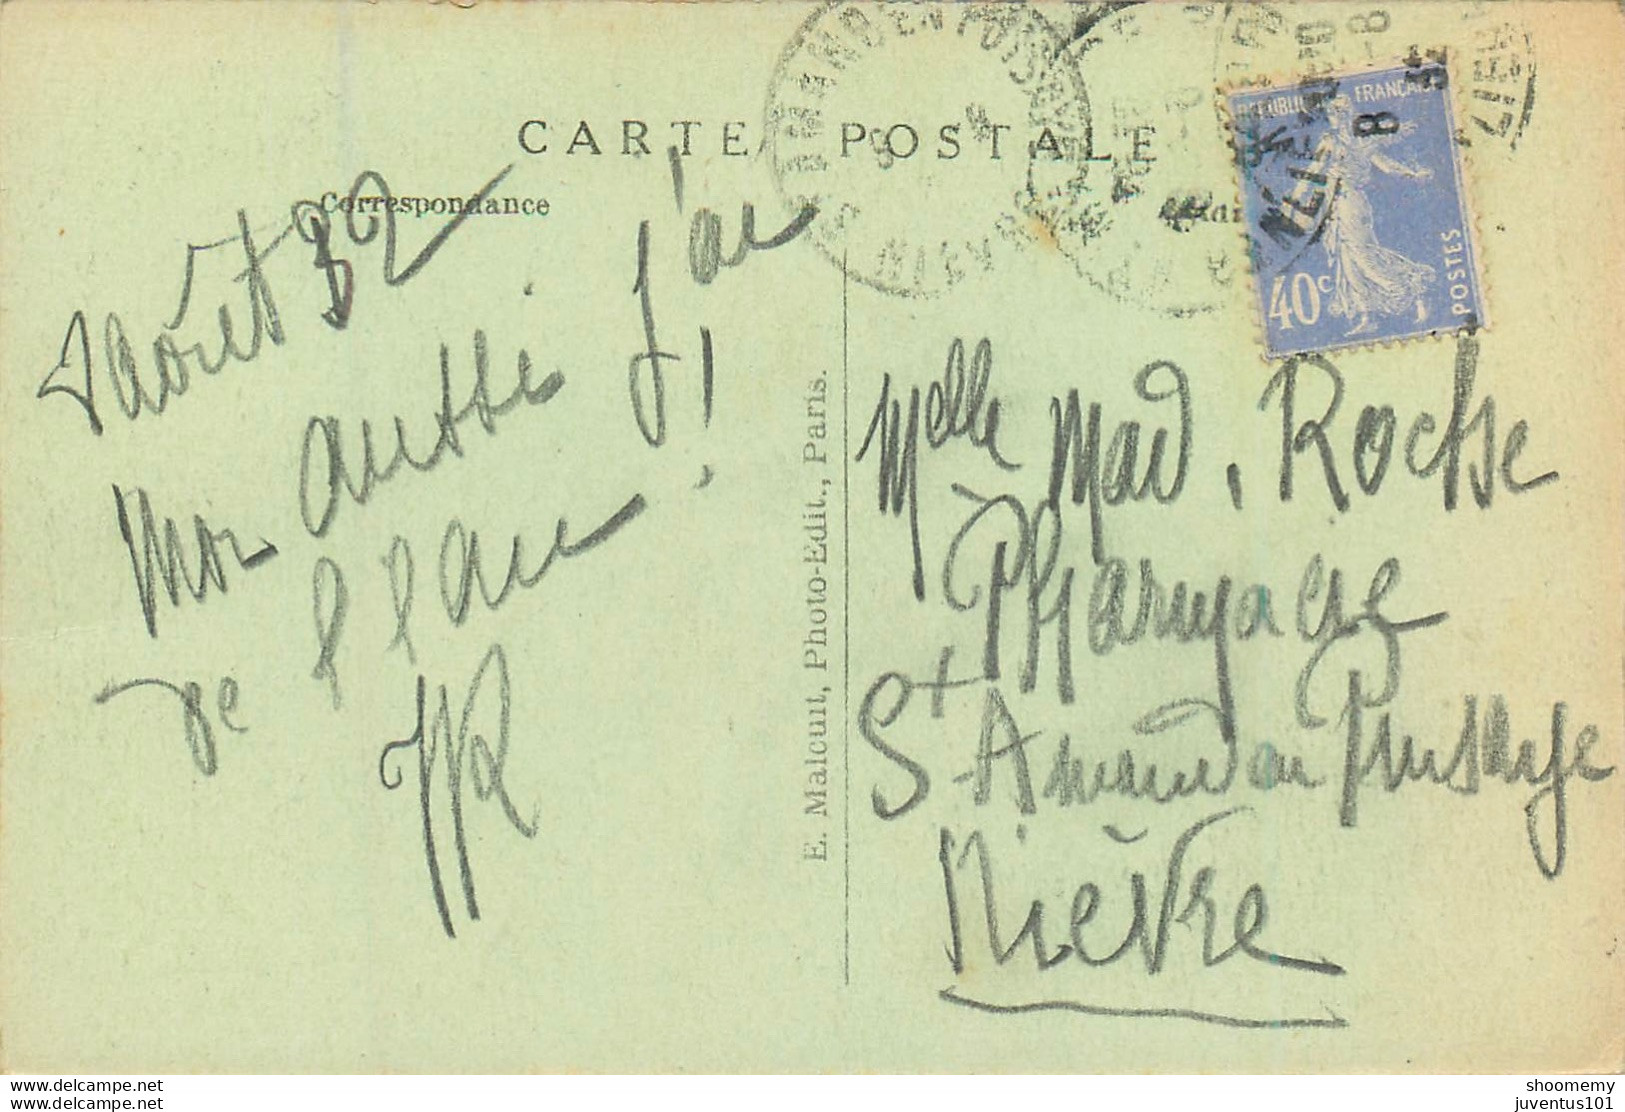 CARTE POSTALE
Correspondance
Août 32
Moi aussi j'ai
de l'eau !
Melle Mad. Roche
Pharmacie
St-Amand en Puisaye
Nièvre
E. Malcuit, Photo-Edit., Paris.
REPUBLIQUE FRANÇAISE
40c
POSTES
www.delcampe.net
shoomemy
juventus101